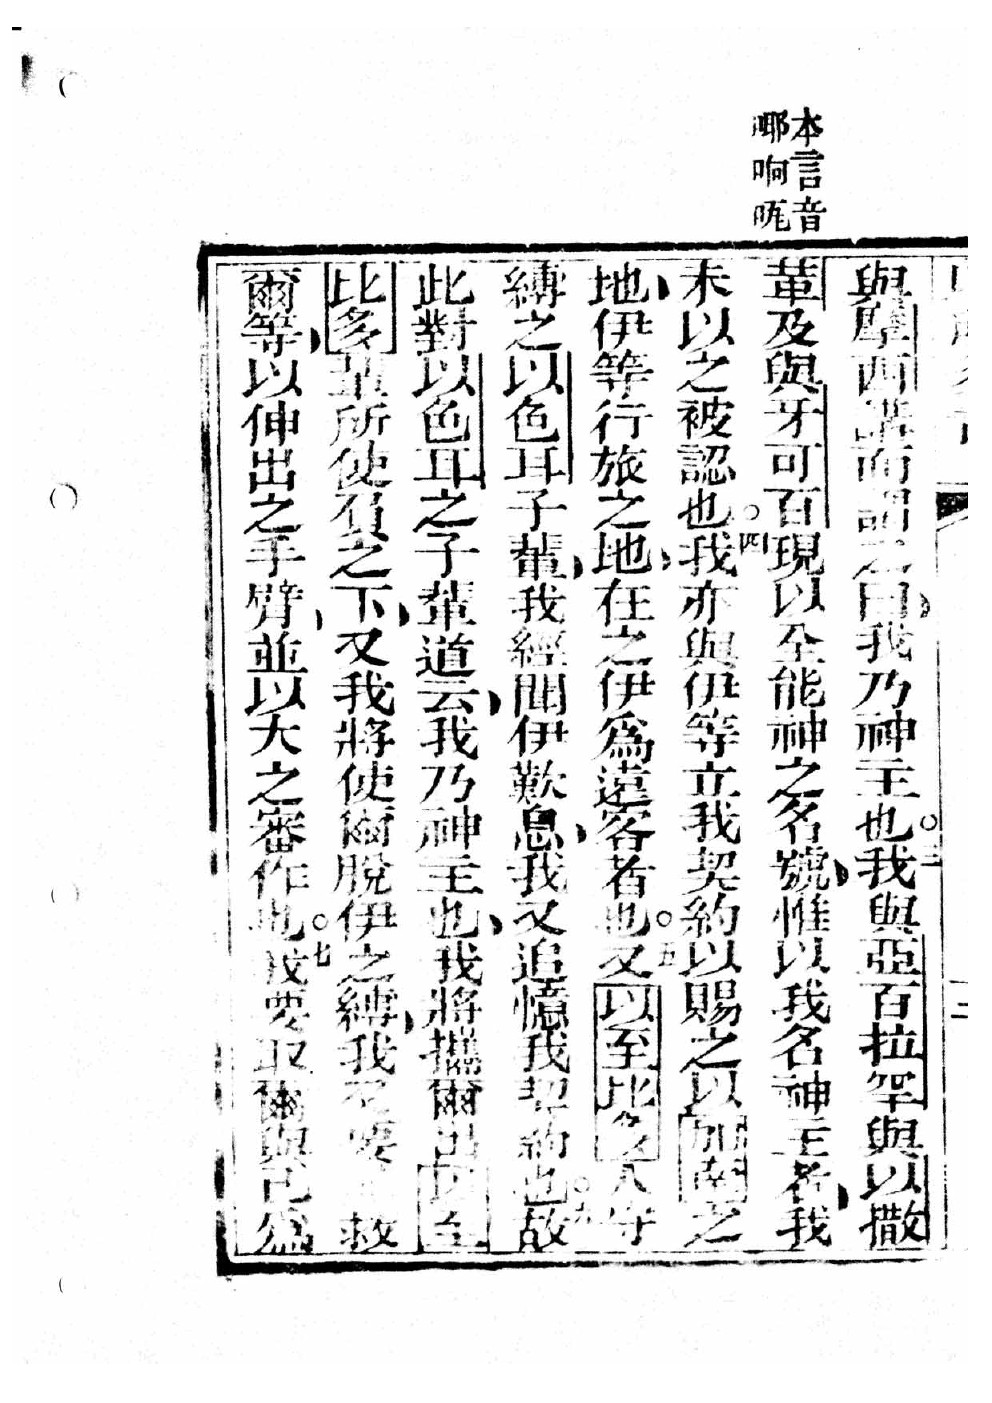 本言音
哪响𠰷
與摩西講而謂之曰我乃神主也○三我與亞百拉罕與以撒
革及與牙可百現以全能神之名號惟以我名神主者我
未以之被認也○四我亦與伊等立我契約以賜之以加南之
地伊等行旅之地在之伊為遠客者也○五又以至比多人守
縛之以色耳子輩我經聞伊歎息我又追憶我契約也○六故
此對以色耳之子輩道云我乃神主也我將攜爾出以至
比多輩所使負之下又我將使爾脫伊之縛我又要救
爾等以伸出之手臂並以大之審作也○七我要取爾與己為